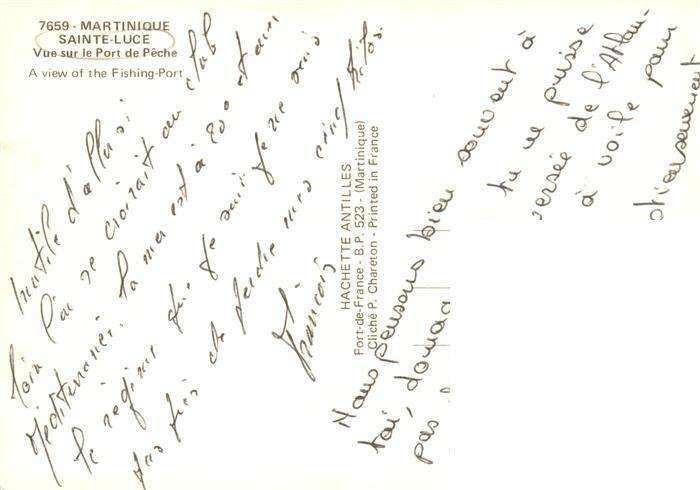 7659 - MARTINIQUE
SAINTE-LUCE
Vue sur le Port de Pêche
A view of the Fishing-Port
Inutile d'aller si
loin se croirait au club
Méditerranée. la mer est à
le régime que je suis je ne suis
pas près de perdre mes cinq kilos.
François
HACHETTE ANTILLES
Fort-de-France - B.P. 523 - (Martinique)
Cliché P. Chareton - Printed in France
Nous pensons bien souvent à
toi, domma tu ne puisse
pas ersée de l'Atlan-
à voile pour